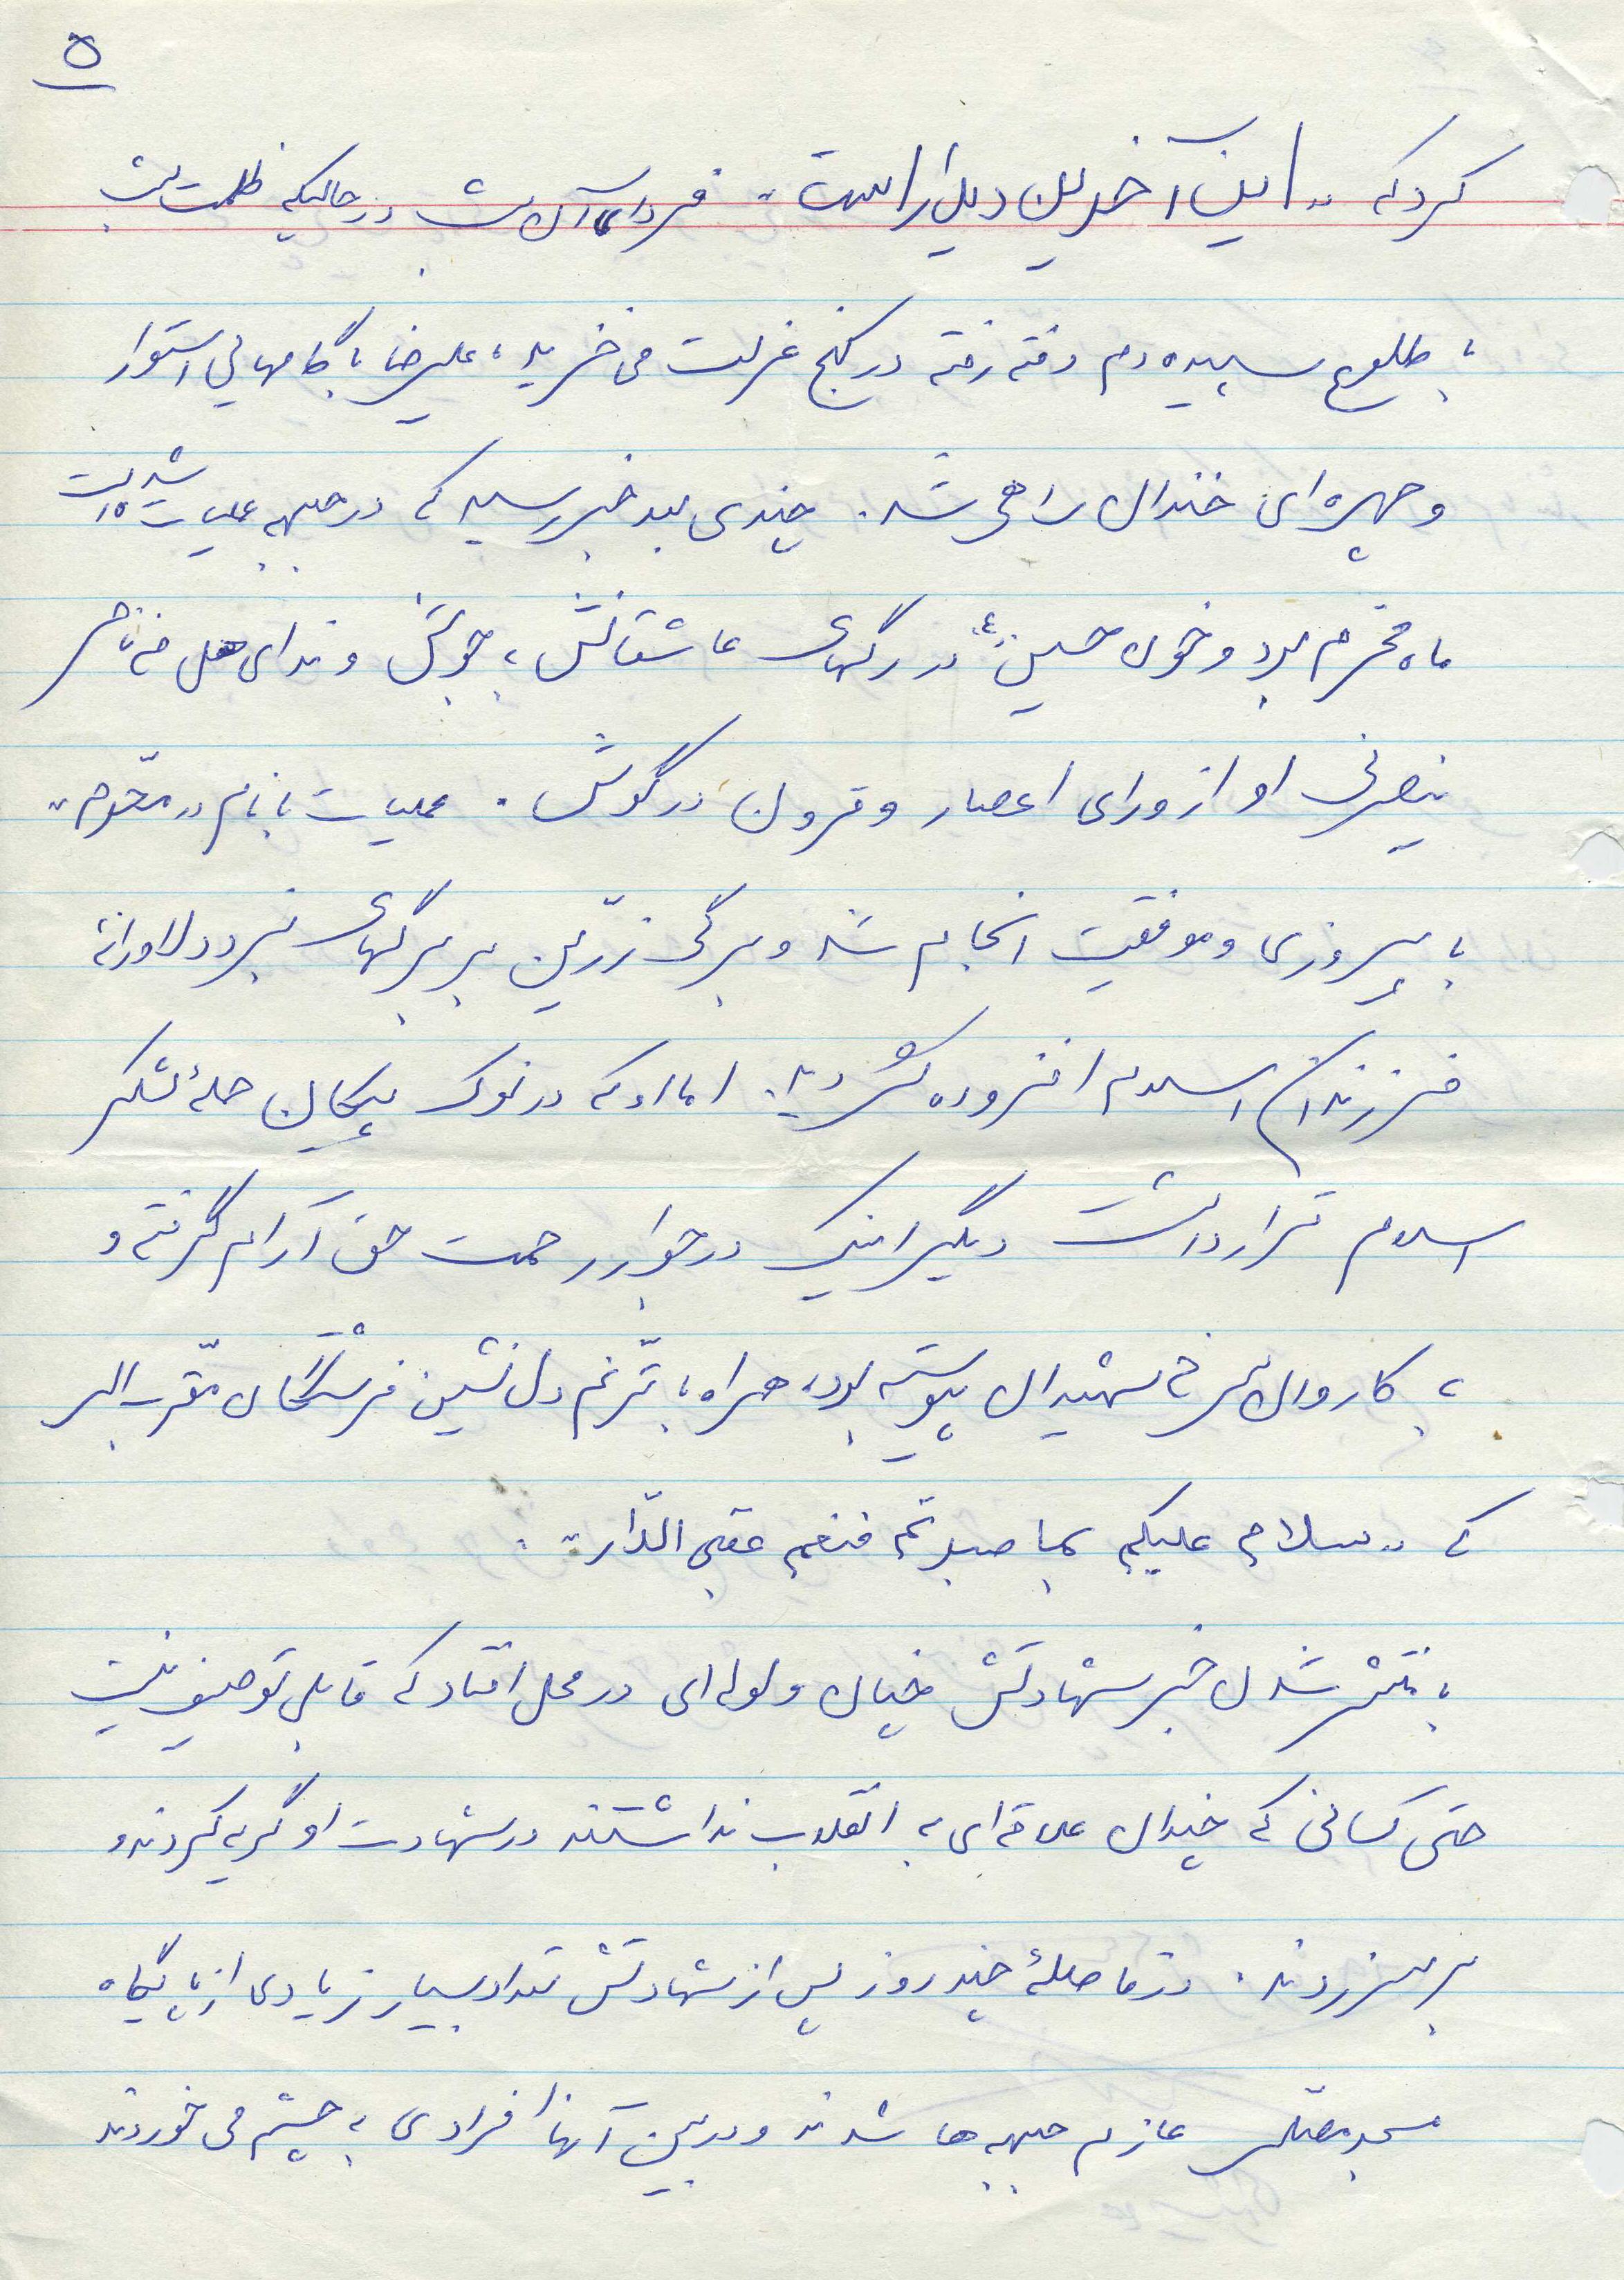 ۵
کرد که «این آخرین دیدار است» فردای آن شب در حالیکه ظلمت شب
با طلوع سپیده دم رفته رفته در کنج عزلت می خزید، علیرضا با گامهایی استوار
و چهره ای خندان راهی شد. چندی بعد خبر رسید که در جبهه عملیات شده است
ماه محرم بود و خون حسین (ع) در رگهای عاشقانش بجوش و ندای هل من ناصر
ینصرنی او از ورای اعصار و قرون در گوش. عملیات با نام «محرم»
با پیروزی و موفقیت انجام شد و برگی زرّین بر برگهای نبرد دلاورانه
فرزندان اسلام افزوده گردید. اما او که در نوک پیکان حملهٔ لشکر
اسلام قرار داشت دیگر اینک در جوار رحمت حق آرام گرفته و
به کاروان سرخ شهیدان پیوسته بود، همراه با ترّنم دل نشین فرشتگان مقّرب الهی
که «سلام علیکم بما صبرتم فنعم عقبی الدّار».
با منتشر شدن خبر شهادتش چنان ولوله ای در محل افتاد که قابل توصیف نیست
حتی کسانی که چندان علاقه ای به انقلاب نداشتند در شهادت او گریه کردند و
بر سر زدند. در فاصلهٔ چند روز پس از شهادتش تعداد بسیار زیادی از پایگاه
مسجد عازم جبهه ها شدند و در بین آنها افرادی به چشم می خوردند